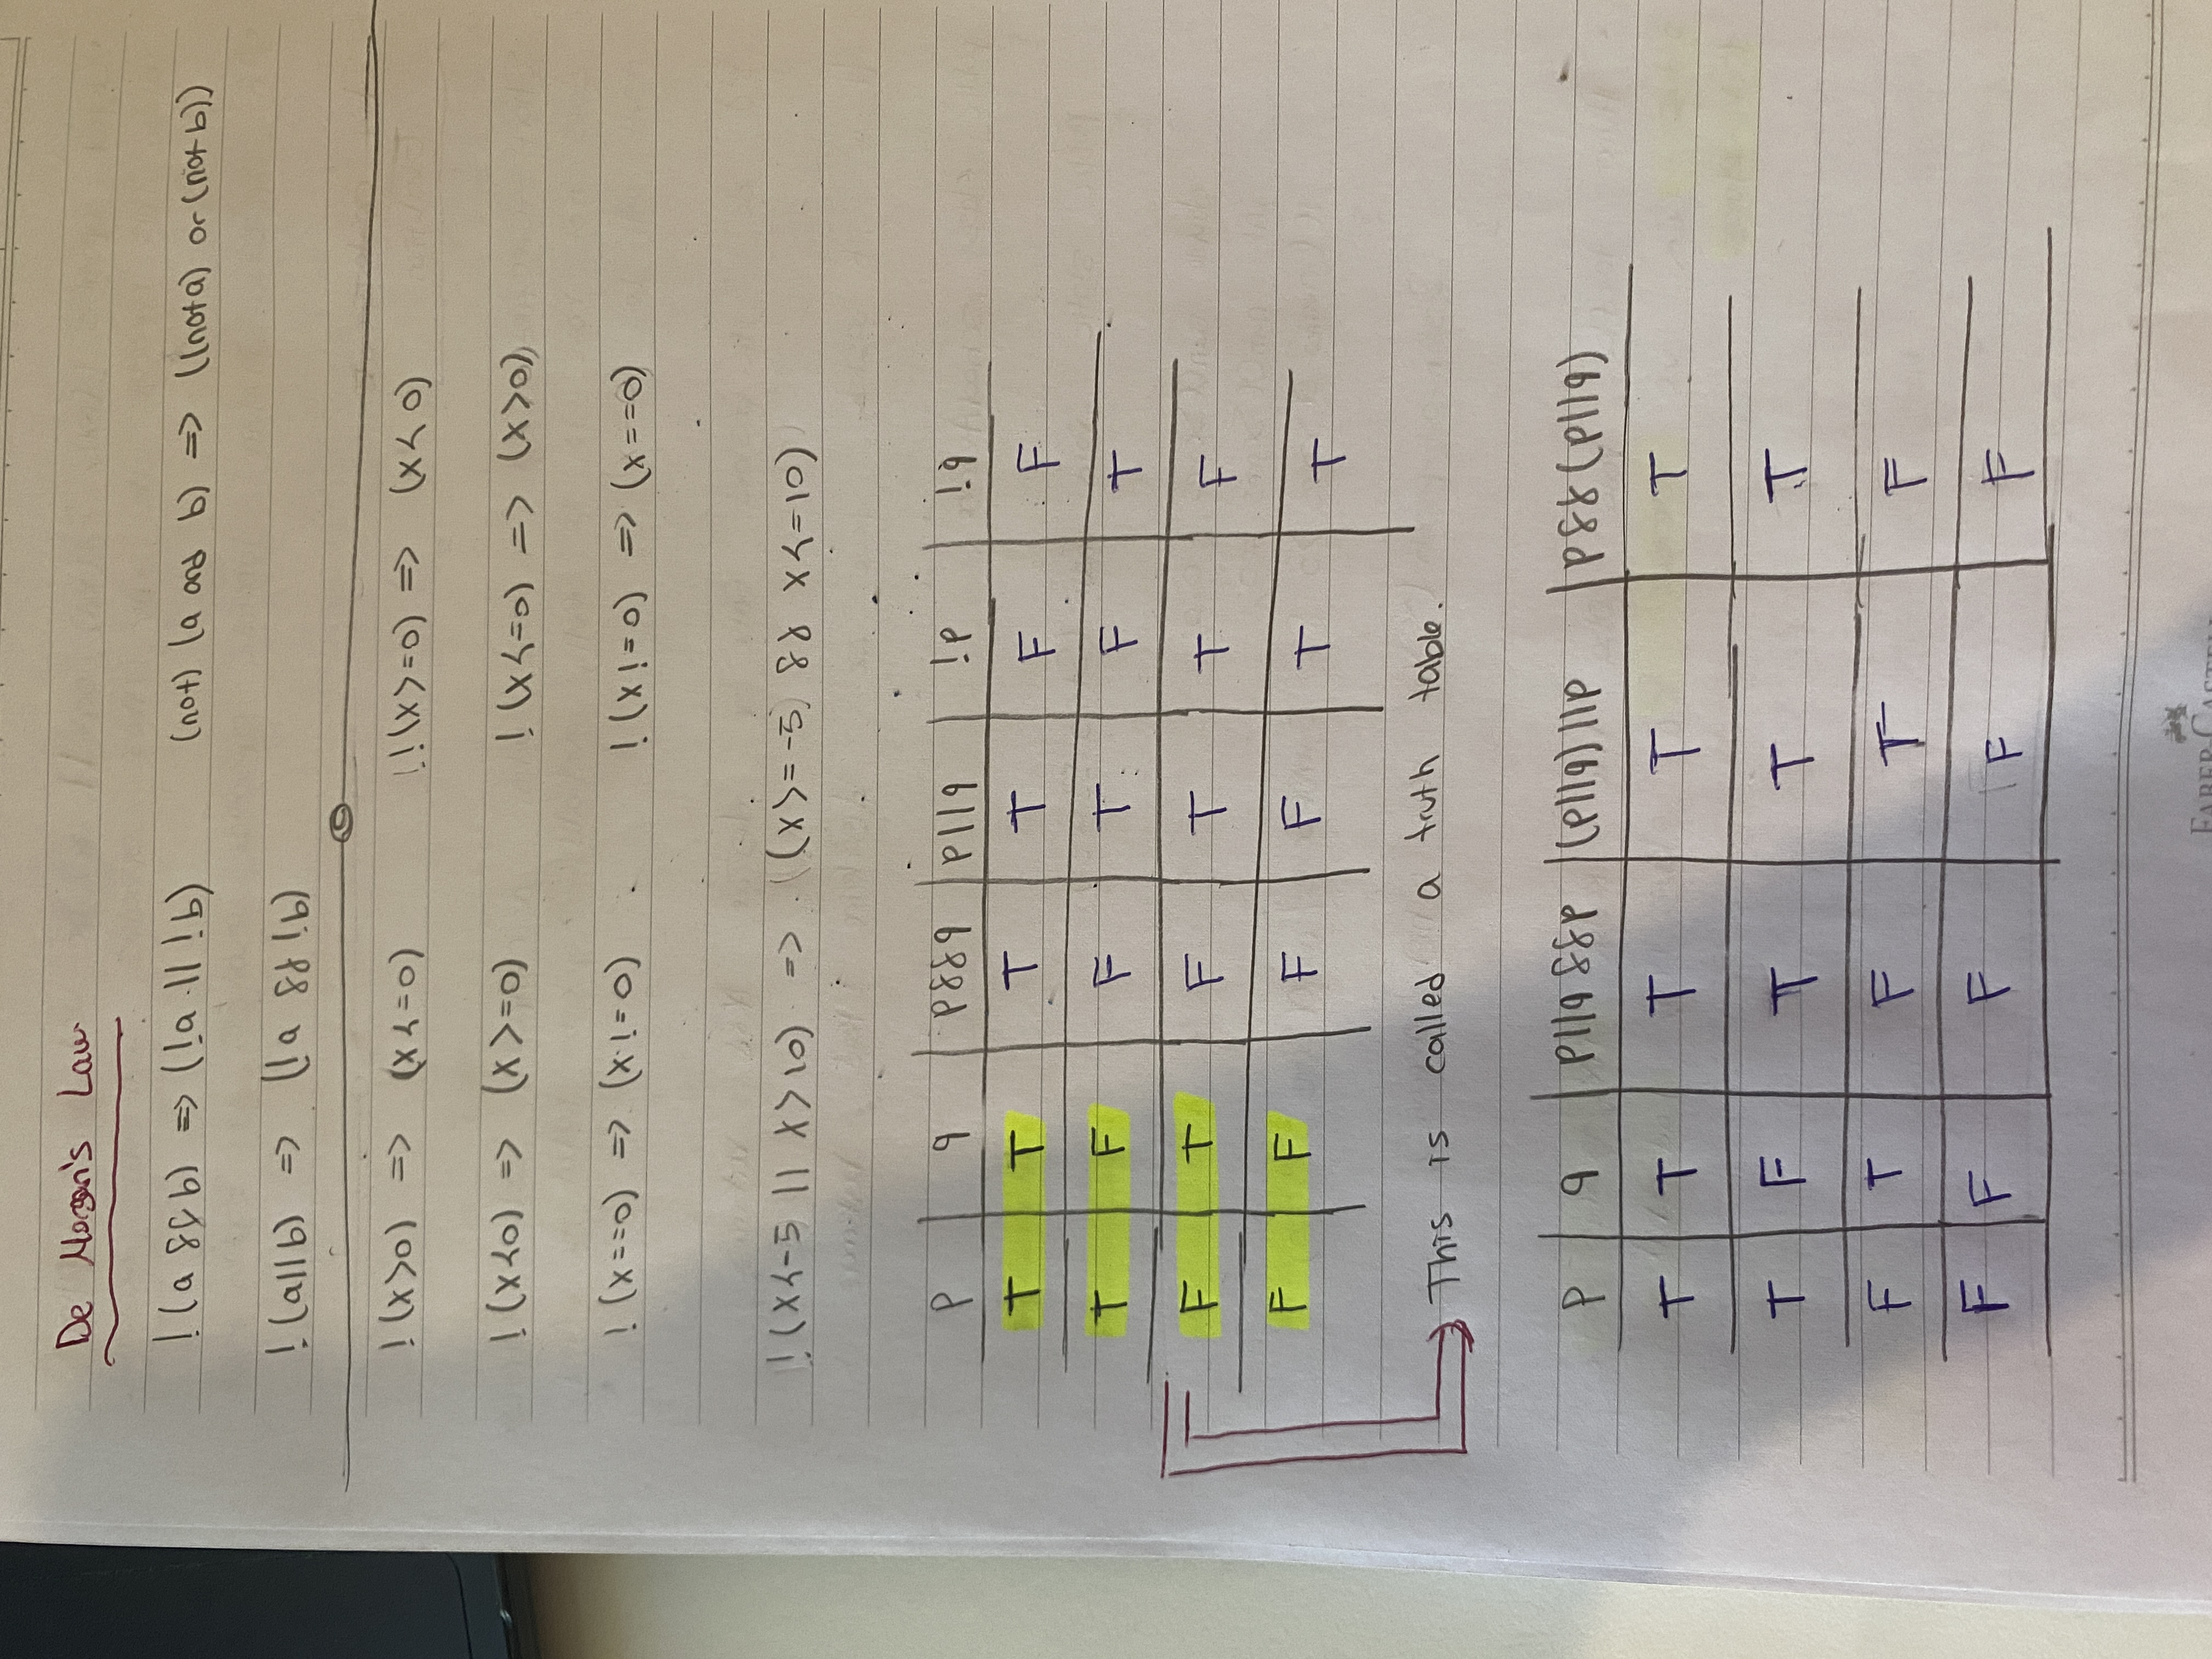 De Morgan's Law
!(a && b) => (!a || !b) (not) (a and b) => ((not a) or (not b))
!(a||b) => (!a && !b)
!(x>0) => (x<=0) !!(x>=0) => (x<0)
!(x<0) => (x>=0) !(x<=0) => (x>0)
!(x==0) => (x!=0) !(x!=0) => (x==0)
!(x<-5 || x>10) => ((x>=-5) && x<=10)
P q P&&q P||q !P !q
T T T T F F
T F F T F T
F T F T T F
F F F F T T
This is called a truth table.
P q P||q &&P (P||q)||P P&&(P||q)
T T T T T
T F T T T
F T F T F
F F F F F
FABER-CASTELL